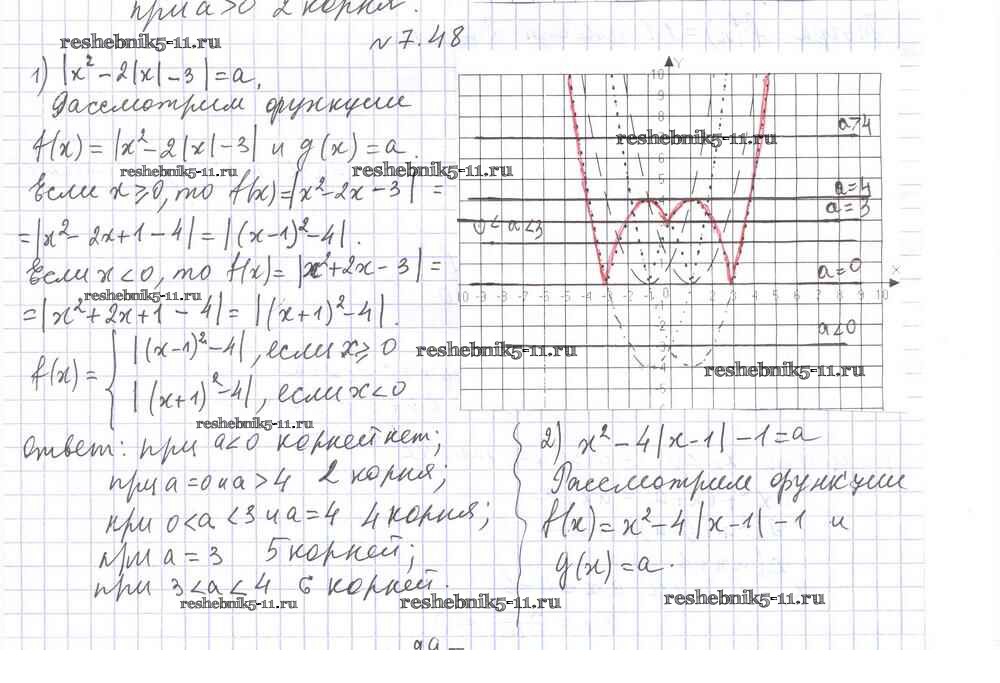 при a>0 2 корня.
reshebnik5-11.ru
№7.48
1) |x²-2|x|-3|=a,
Рассмотрим функции
f(x)=|x²-2|x|-3| и g(x)=a
reshebnik5-11.ru
reshebnik5-11.ru
Если x≥0, то f(x)=|x²-2x-3| =
=|x²-2x+1-4|=|(x-1)²-4|.
Если x<0, то f(x)=|x²+2x-3| =
reshebnik5-11.ru
=|x²+2x+1-4|=|(x+1)²-4|.
f(x)= { |(x-1)²-4|, если x≥0
|(x+1)²-4|, если x<0
reshebnik5-11.ru
Ответ: при a<0 корней нет;
при a=0 и a>4 2 корня;
при 0<a<3 и a=4 4 корня;
при a=3 5 корней;
при 3<a≤4 6 корней.
reshebnik5-11.ru
reshebnik5-11.ru
Y
10
9
8
reshebnik5-11.ru
a>4
6
5
a=4
a=3
0<a<3
a=0
X
-10 -9 -8 -7 -6 -5 -4 -3 -2 -1 0 1 2 3 4 5 6 7 8 9 10
a<0
-2
reshebnik5-11.ru
-4
reshebnik5-11.ru
-5
2) x²-4|x-1|-1=a
Рассмотрим функции
f(x)=x²-4|x-1|-1 и
g(x)=a.
reshebnik5-11.ru